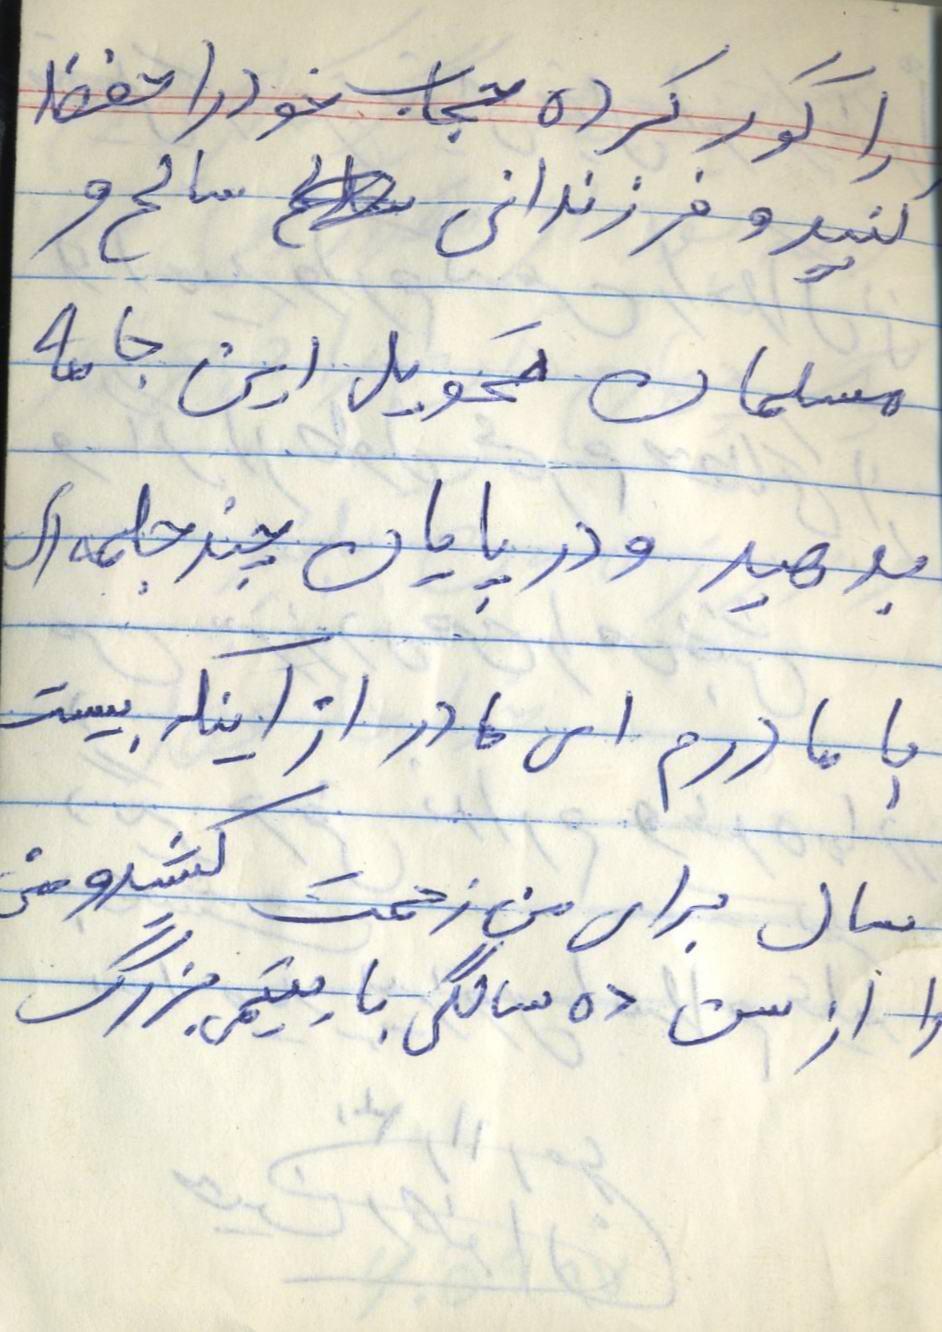 را گور کرده حجاب خود را حفظ
کنید و فرزندانی سالح و
مسلمان تحویل این جامعه
بدهید و در پایان چند جلمه ای
با مادرم ای مادر از اینکه بیست
سال برای من زحمت کشید و من
را از سن ده سالگی با یتیمی بزرگ